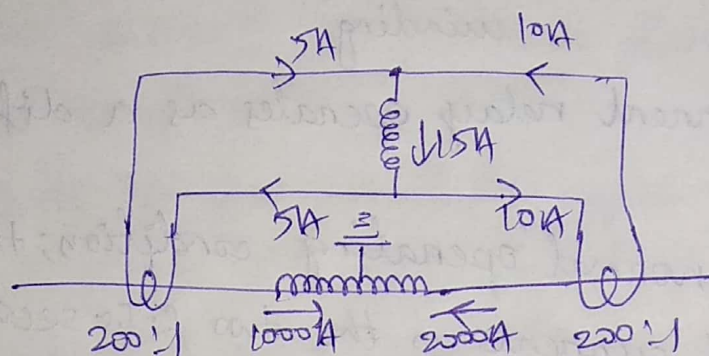 5A 10A
↓15A
5A 10A
200:1 1000A 2000A 200:1